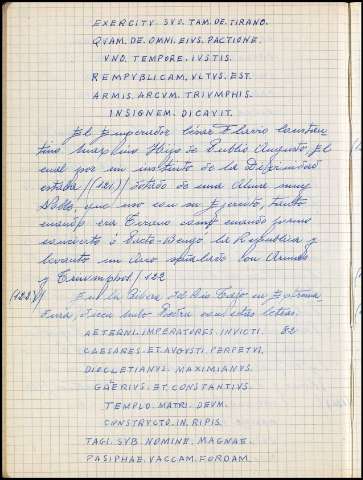 EXERCITV. SVO. TAM. DE. TIRANO.
QVAM. DE. OMNI. EIVS. PACTIONE.
VNO. TEMPORE. IVSTIS.
REMPVBLICAM. VLTVS. EST.
ARMIS. ARCVM. TRIVMPHIS.
INSIGNEM. DICAVIT.
El Emperador Cesar Flavio Constan
tino Maximo Hijo de Publio Augusto, el
cual por un instinto de la
(121) dotado de una Alma muy
que uso con su Ejercito, tanto
cuando era Tirano como cuando
la Republica y
levanto un Arco señalado con Armas
y Triumphos/122
(122)// En la Rivera del Rio Tajo en Estrema
dura, letras.
AETERNI. IMPERATORES. INVICTI. 82
CAESARES. ET. AVGVSTI. PERPETVI.
DIOCLETIANVS. MAXIMIANVS.
GAĒRIVS. ET. CONSTANTIVS.
TEMPLO. MATRI. DEVM.
CONSTRVCTO. IN. RIPIS.
TAGI. SVB. NOMINE. MAGNAE.
PASIPHAE. VACCAM. FORDAM.